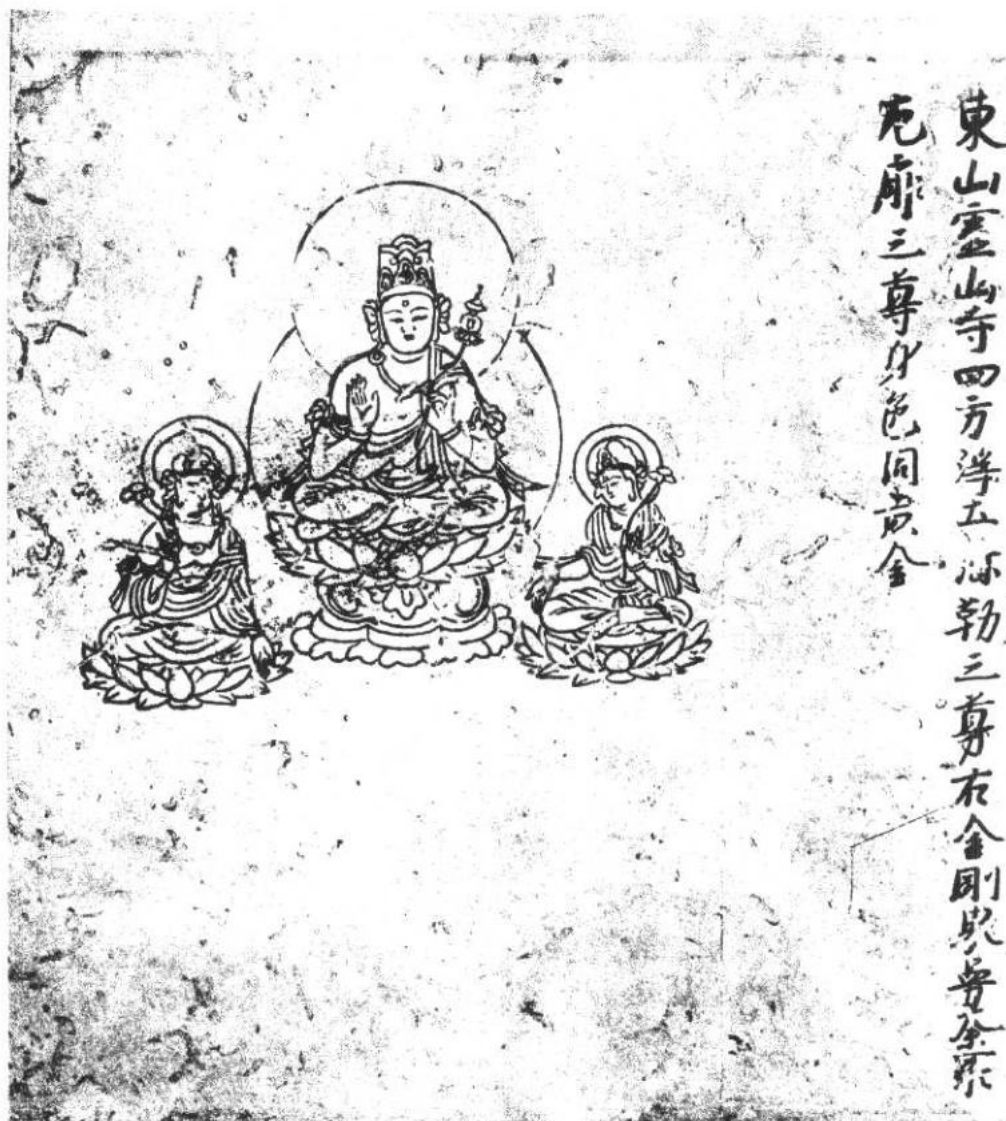 東山霊山寺四方浄土弥勒三尊右金剛
三尊身色同黄金